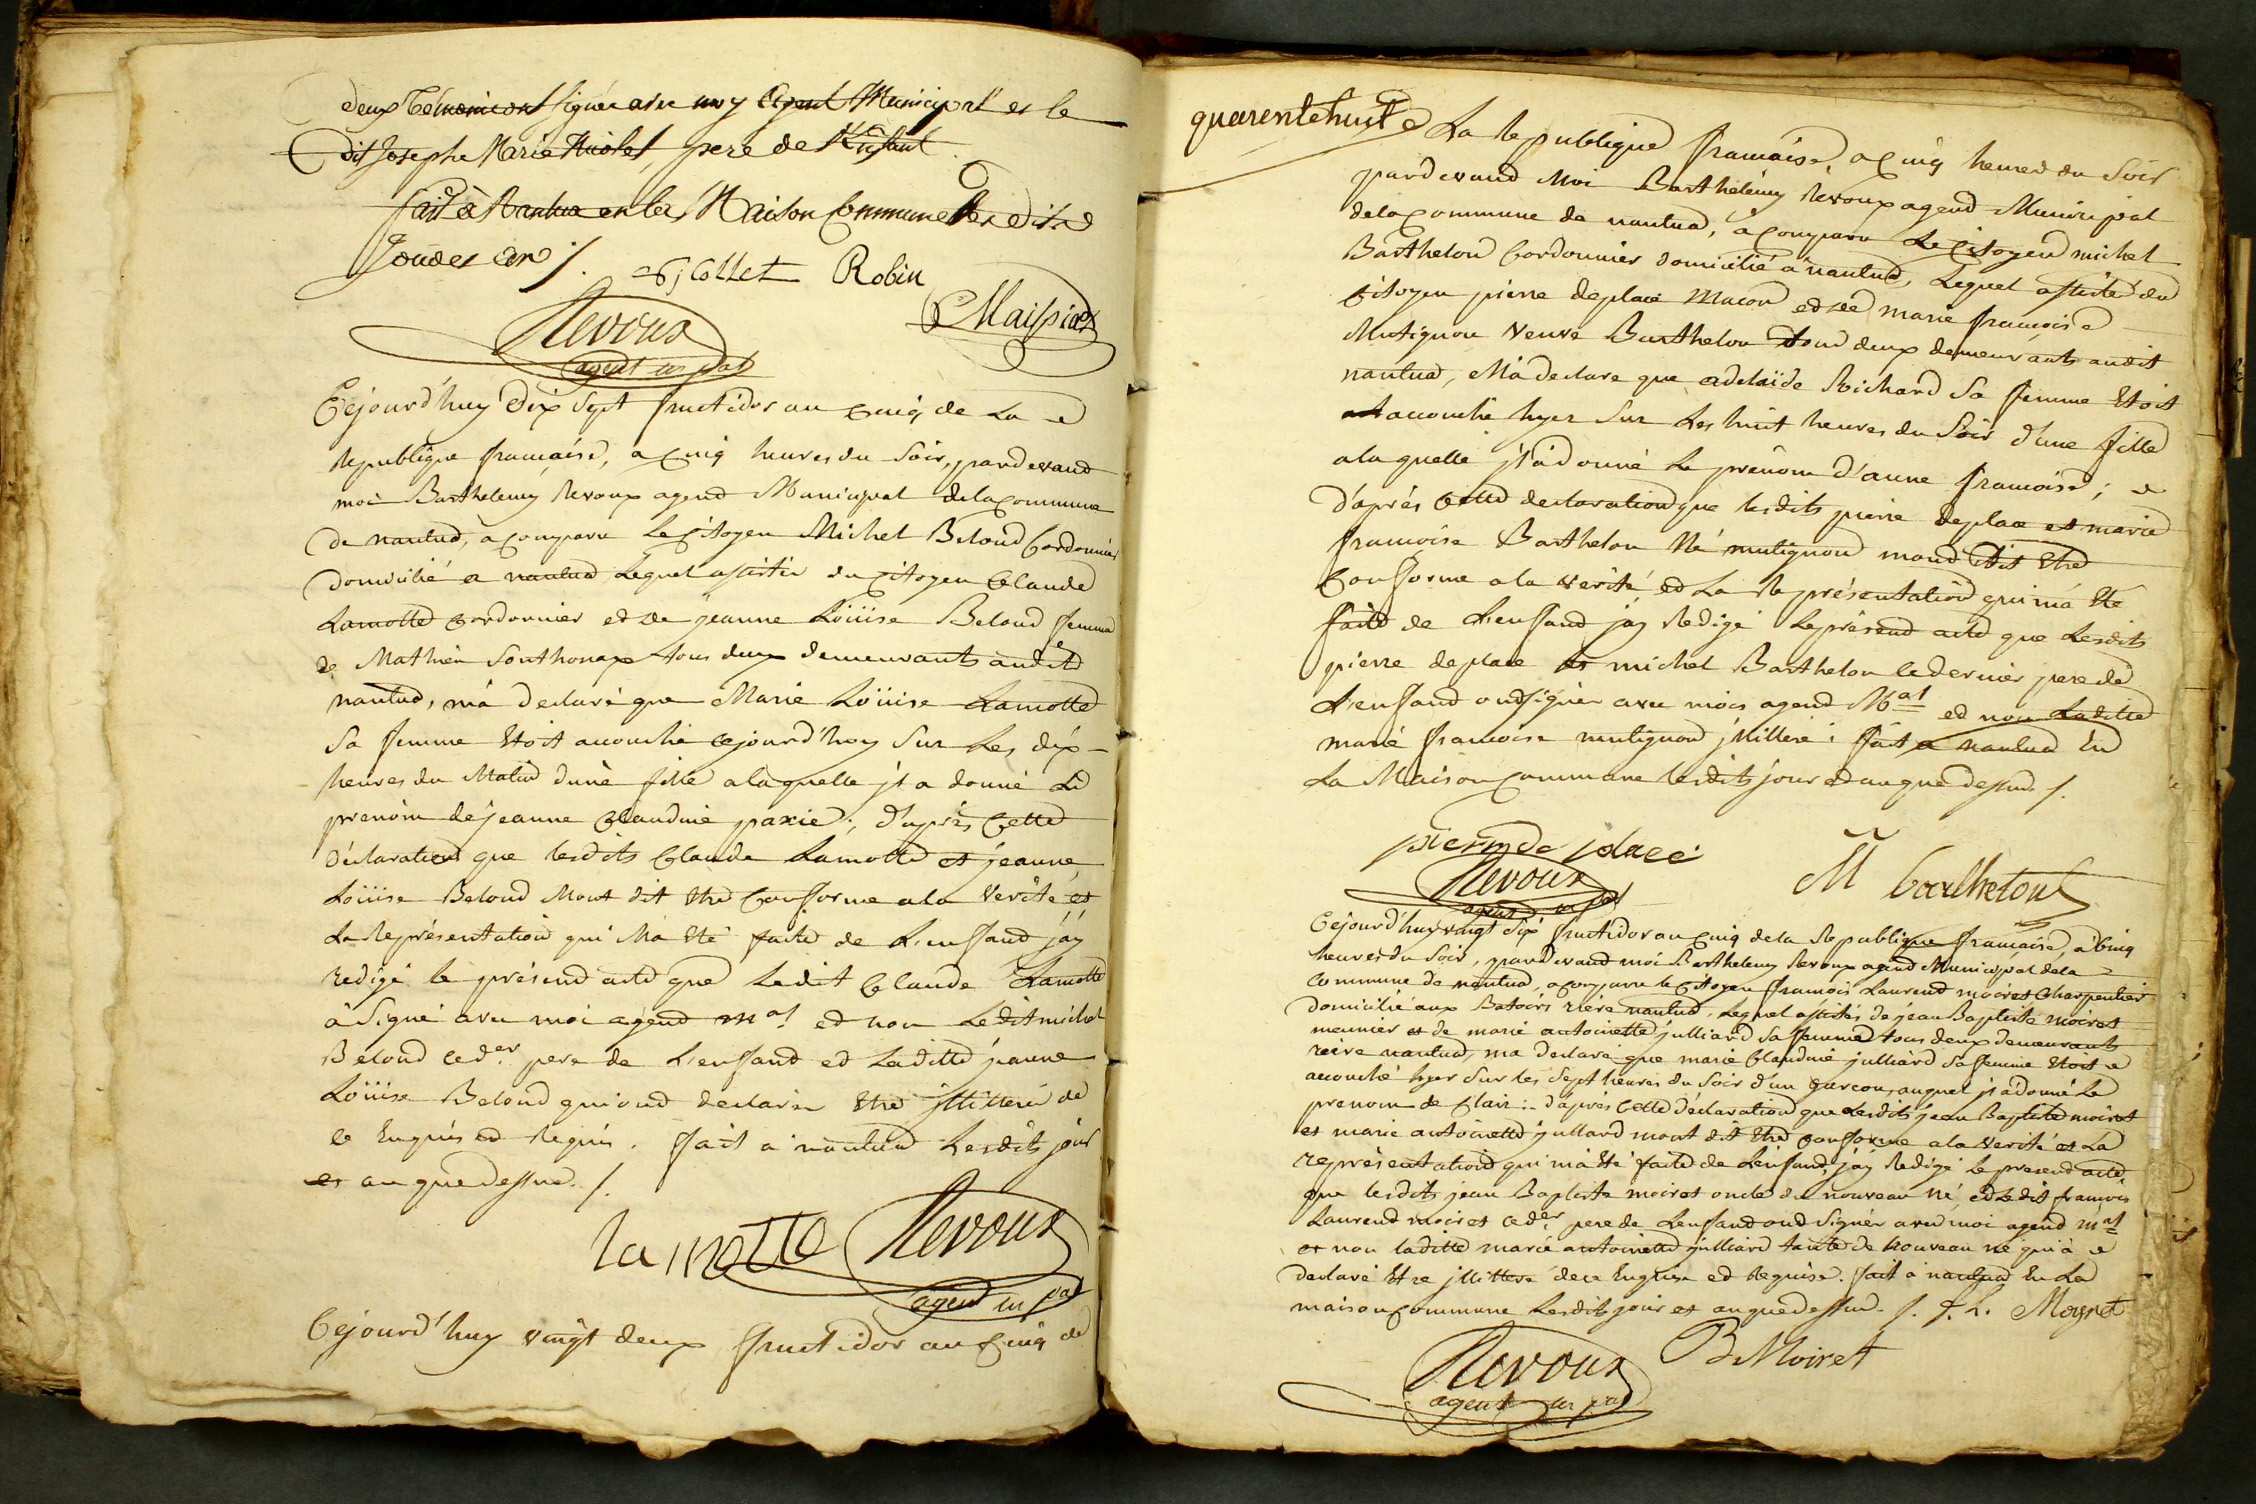 deux Témoins ont signée avec moy Agent Municipal et le
dit Joseph Marie pere de l'Enfant
fait à Nantua en la Maison Commune les dits
Jours et an /.
Collet Robin
Revoux
agent m pal
Cejourd'huy Dix Sept fructidor an Cinq de La
Republique francaise, a Cinq heures du Soir, pardevand
moi Barthelemy Revoux agend Municipal dela Commune
de nantua, à Comparu Le Citoyen Michel Beloud Cordonnier
domicilié a nantua Lequel assistée du Citoyen Claude
Lamotte Cordonnier et de jeanne Loüise Beloud femme
de Mathieu Southonax tous deux demeurants audit
nantua, m'a declaré que Marie Loüise Lamotte
Sa femme Etoit accouchée cejourd'huy Sur Les dix
heures du Matin d'une fille a laquelle jl a donné Le
prenom de jeanne Claudine ; d'après Cette
déclaration que lesdits Claude Lamotte et jeanne
Loüise Beloud Mont dit Etre Conforme a la Verité et
La Représentation qui M'a Eté faite de L'enffand j'ay
redigé le présend acte que Ledit Claude Lamotte
à Signé avec moi agend mal et non Ledit michel
Beloud ceder pere de L'enffand et Laditte jeanne
Loüise Beloud qui ond declarer Etre jllitteré de
ce Enquis et Requis. fait a nantua Lesdits jour
et an que dessus. /.
lamotte Revoux
agend m pal
Cejourd'huy vingt deux fructidor an Cinq de
quarente huit
La Republique francaise, a Cinq heures du Soir
pardevand Moi Barthelémy Revoux agend Municipal
dela Commune de nantua, à Comparu Le Citoyen michel
Barthelon Cordonnier domicilié a nantua, Lequel assisté du
Citoyen pierre deplace Macon et de marie francoise
Mutignon Veuve Barthelon tous deux demeurants audit
nantua, M'a declare que adelaïde Richard Sa femme Etoit
accouchée hyer Sur Les huit heures du Soir d'une fille
a la quelle jl a donné Le prénom d'anne francoise ;
d'après Cette declaration que lesdits pierre deplace et marie
francoise Barthelon Né mutignon mond dit Etre
Conforme a la Verité et La Représentation qui m'a Eté
faite de L'enffand jay Redigé Le présend acte que Lesdits
pierre deplace et michel Barthelon le dernier pere de
L'enffand ond signer avec mois agend Mal et non Laditte
marie francoise mutignon jllitteré ; fait a nantua En
La Maison Commune lesdits jour et an que dessus /.
pierre de place
Revoux
agend m pal
M barthelon
Cejourd'huy vingt Six fructidor an Cinq dela Republique française, à Cinq
heures du Soir, pardevand moi Barthelemy Revoux agend Municipal dela
Commune de nantua, a Comparu le Citoyen francois Laurend moiret Charpentier
domicilié aux Batoirs riére nantua, Lequel assistés de jean Baptiste moiret
meunier et de marie antoinette julliard Sa femme tous deux demeurants
reire nantua, ma declaré que marie Claudine julliard Sa femme Etoit
accouché hyer Sur les Sept heures du Soir d'un garcon auquel jl a donné Le
prenom de Clair : d'après Cette déclaration que Lesdits jean Baptiste moiret
et marie antoinette jullard mont dit Etre Conforme a la Verité et La
représentation qui m'a Eté faite de L'enffand, j'ay Redigé Le presend acte
que lesdits jean Baptiste moiret oncle du nouveau né, et Ledit francois
Laurend moiret ceder pere de L'enffand ond signer avec moi agend mal
et non laditte marie antoinette julliard tante de nouveau né qui à
declaré Etre jllittere de ce Enquise et Requise. fait a nantua En La
maison Commune Lesdits jour et an que dessus. /. f. L. Moyret
B Moiret
Revoux
agent m pal